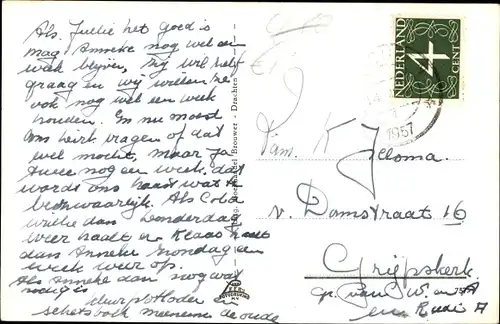 Als Jullie het goed is
mag Anneke nog wel een
week blijven, zij wil heel
graag en wij willen ze
ook nog wel een week
houden. En nu moest
ons vragen of dat
wel mocht, maar ja
nog een week, dat
wordt ons haast wat
bezwaarlijk. Als Cobi
dan Donderdag
weer haalt en Klaas haalt
dan Anneke Zondag een
week weer op.
Als Anneke dan nog wat
nodig is
schetsboek meenemen de oude
Boekhandel Brouwer - Drachten
NEDERLAND
4
CENT
1957
Fam. K Jelloma
v. Damstraat 16
Grijpskerk
gr. van W en A
en A